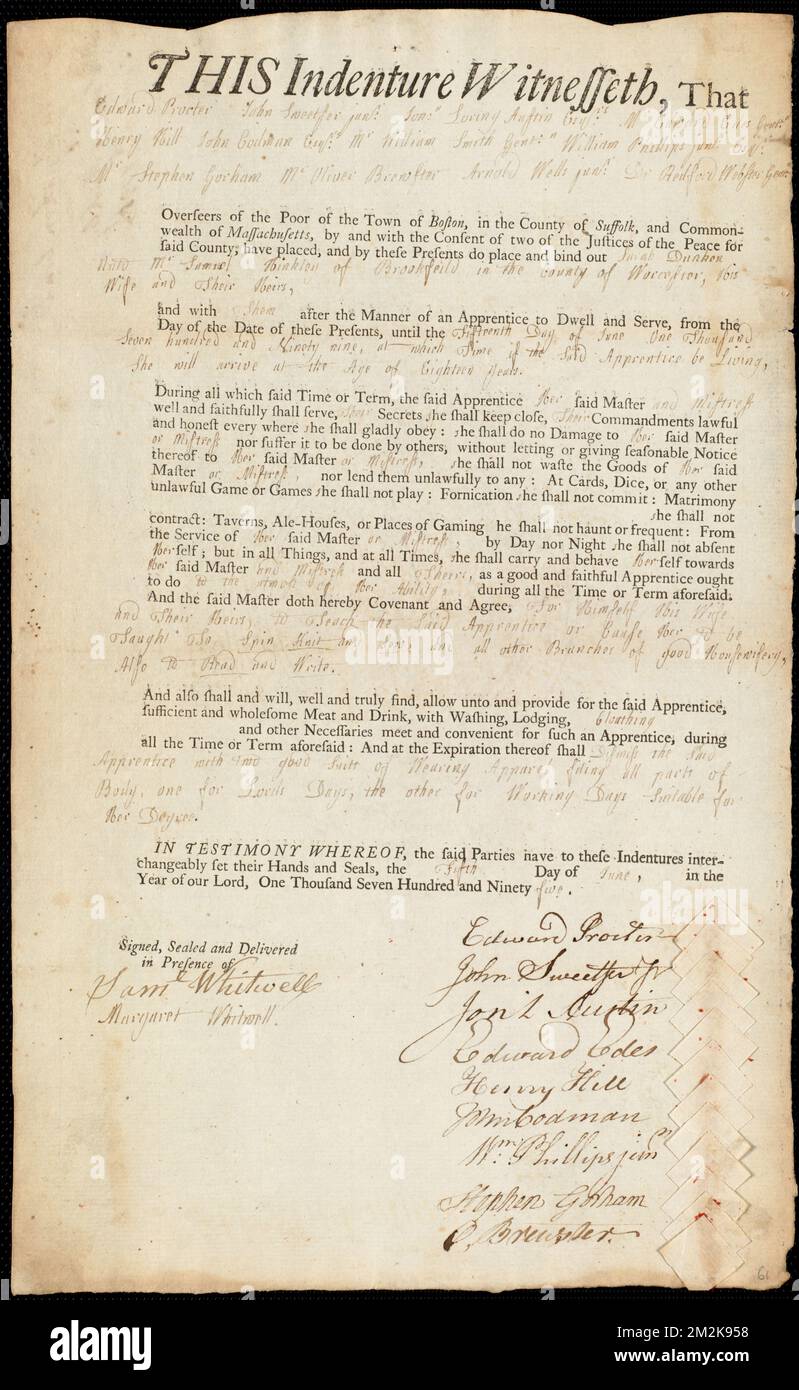 THIS Indenture Witneſſeth, That
Edward Procter John Sweetſer junʳ. Jonᵃ Loring Auſtin Esqʳˢ Mʳ Edward Edes Gentⁿ
Henry Hill John Codman Esqʳˢ Mʳ William Smith Gentⁿ William Phillips junʳ Esqʳ
Mʳ Stephen Gorham Mʳ Oliver Brewſter Arnold Wells junʳ. Dr Redford Webſter Gentⁿ
Overſeers of the Poor of the Town of Boſton, in the County of Suffolk, and Common-
wealth of Maſſachuſetts, by and with the Conſent of two of the Juſtices of the Peace for
ſaid County, have placed, and by theſe Preſents do place and bind out Sarah Dunken
Unto Mʳ Samuel Hinkley of Brookfeild in the County of Worceſter, his
Wife and Their Heirs,
and with Them after the Manner of an Apprentice to Dwell and Serve, from the
Day of the Date of theſe Preſents, until the Fifteenth Day of June One Thouſand
Seven hundred and Ninety nine, at which Time if the Said Apprentice be Living,
She will arrive at the Age of Eighteen Years.
During all which ſaid Time or Term, the ſaid Apprentice Her ſaid Maſter and Miſtreſs
well and faithfully ſhall ſerve, Their Secrets ſhe ſhall keep cloſe, Their Commandments lawful
and honeſt every where ſhe ſhall gladly obey: ſhe ſhall do no Damage to Her ſaid Maſter
or Miſtreſs nor ſuffer it to be done by others, without letting or giving ſeaſonable Notice
thereof to Her ſaid Maſter or Miſtreſs, ſhe ſhall not waſte the Goods of Her ſaid
Maſter or Miſtreſs, nor lend them unlawfully to any: At Cards, Dice, or any other
unlawful Game or Games ſhe ſhall not play: Fornication ſhe ſhall not commit: Matrimony
ſhe ſhall not
contract: Taverns, Ale-Houſes, or Places of Gaming he ſhall not haunt or frequent: From
the Service of Her ſaid Maſter or Miſtreſs, by Day nor Night ſhe ſhall not abſent
Herſelf; but in all Things, and at all Times, ſhe ſhall carry and behave Herſelf towards
Her ſaid Maſter and Miſtreſs and all Theirs, as a good and faithful Apprentice ought
to do to the utmoſt of Her Ability, during all the Time or Term aforeſaid.
And the ſaid Maſter doth hereby Covenant and Agree, For Himſelf His Wife
and Their Heirs, to Teach the Said Apprentice or Cauſe Her to be
Taught To Spin Knit and Sewe and all other Branches of good Houſewifery,
Alſo to Read and Write.
And alſo ſhall and will, well and truly find, allow unto and provide for the ſaid Apprentice,
ſufficient and wholeſome Meat and Drink, with Waſhing, Lodging, Cloathing
and other Neceſſaries meet and convenient for ſuch an Apprentice, during
all the Time or Term aforeſaid: And at the Expiration thereof ſhall Diſmiſs the Said
Apprentice with two good Suits of Wearing Apparel fiting all parts of
Body, one for Lords Days, the other for Working Days Suitable for
Her Degree.
IN TESTIMONY WHEREOF, the ſaid Parties have to theſe Indentures inter-
changeably ſet their Hands and Seals, the Fifth Day of June, in the
Year of our Lord, One Thouſand Seven Hundred and Ninety five.
Signed, Sealed and Delivered
in Preſence of
Samˡ Whitwell
Margaret Whitwell.
Edward Procter
John Sweetſer Jr
Jonᵃ L Austin
Edward Edes
Henry Hill
John Codman
Wᵐ. Phillips junʳ
Stephen Gorham
O. Brewster.
61
alamy
Image ID: 2M2K958
www.alamy.com